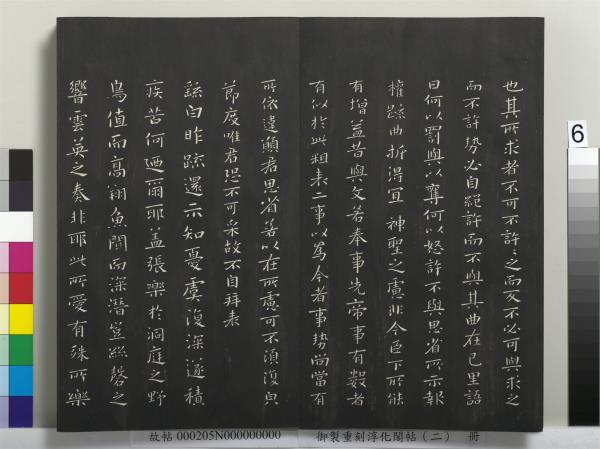 也其所求者不可不許〻之而反不必可與求之
而不許勢必自絕許而不與其曲在己里語
曰何以罰與以奪何以怒許不與思省所示報
權疏曲折得宜神聖之慮非今臣下所能
有增益昔與文若奉事先帝事有數者
有似於此粗表二事以為今者事勢尚當有
所依違願君思省若以在所慮可不須復皃
節度唯君恐不可采故不自拜表
繇白昨疏還示知憂虞復深遂積
疾苦何迺爾耶蓋張樂於洞庭之野
鳥值而高翔魚聞而深潛豈絲磬之
響雲英之奏非耶此所愛有殊所樂
6
故帖 000205N000000000 御製重刻淳化閣帖（二） 冊